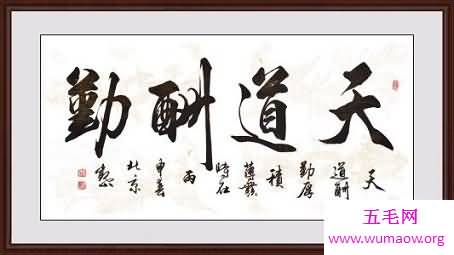 天道酬勤
天
道酬
勤厚
積
薄發
時在
丙
申春
北京
五毛网
www.wumaow.org